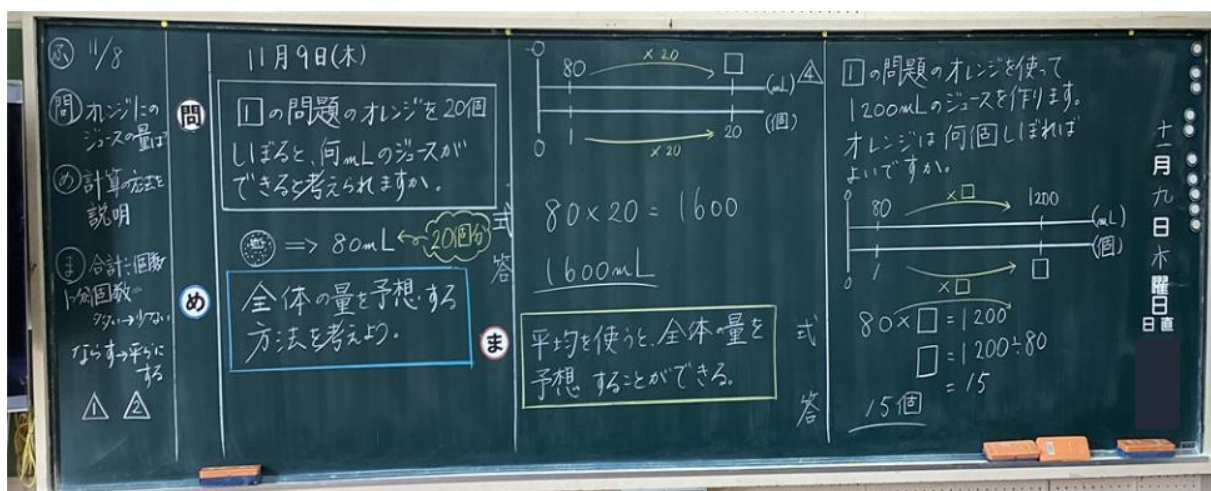 ふ 11/8
問 オレンジ1この
ジュースの量は?
め 計算の方法を
説明
ま 合計÷個数
個数
多い→少ない
ならす→平らに
する
1 2
11月9日(木)
問
1の問題のオレンジを20個
しぼると、何mLのジュースが
できると考えられますか。
=> 80mL 20個分
め
全体の量を予想する
方法を考えよう。
0 80 ×20 □ (mL)
0 1 ×20 20 (個)
式
80×20=1600
答
1600mL
ま
平均を使うと、全体の量を
予想することができる。
4
1の問題のオレンジを使って
1200mLのジュースを作ります。
オレンジは何個しぼれば
よいですか。
0 80 ×□ 1200 (mL)
0 1 ×□ □ (個)
式
80×□=1200
□=1200÷80
=15
答
15個
十一月九日木曜日
日直